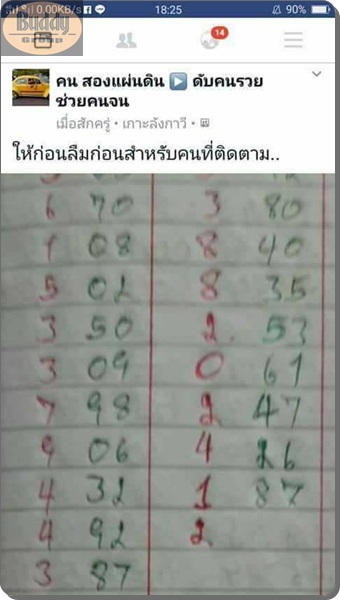 0.00KB/s 18:25 90%
Buddy
Group
14
คน สองแผ่นดิน ▶ ดับคนรวย
ช่วยคนจน
เมื่อสักครู่ • เกาะลังกาวี •
ให้ก่อนลืมก่อนสำหรับคนที่ติดตาม..
6 70 3 80
1 08 8 40
5 02 8 35
3 50 2 53
3 09 0 61
7 98 2 47
9 06 4 26
4 32 1 87
4 92 2
3 87